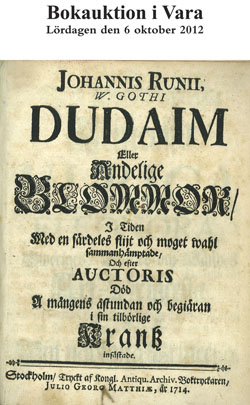 Bokauktion i Vara
Lördagen den 6 oktober 2012
JOHANNIS RUNII,
W. GOTHI
DUDAIM
Eller
Andelige
BLOMMOR/
I Tiden
Med en särdeles flijt och moget wahl
sammanhämptade/
Och efter
AUCTORIS
Död
A mångens åstundan och begiäran
i sin tilbörlige
Krantz
infäskade.
Stockholm/ Tryckt af Kongl. Antiqu. Archiv. Boktryckaren,
JULIO GEORG MATTHIÆ, år 1714.